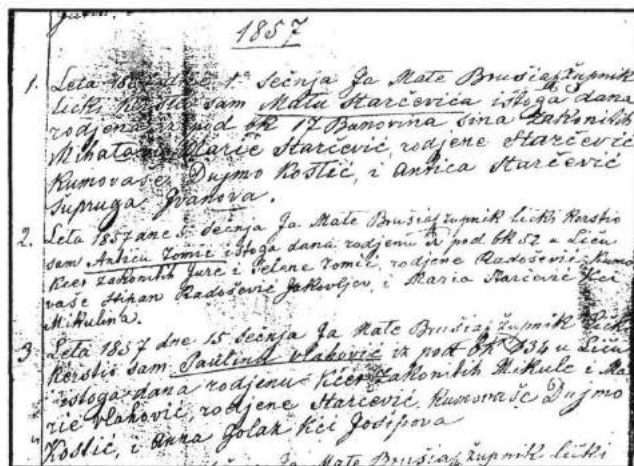 1857
1. Leta 1857 dne 1. sečnja Ja Mate Brušiaj župnik
lički kerstio sam Matu Starčevića istoga dana
rodjena iz pod bk 17 Banovina sina zakonitih
Mihata i Marie Starčević, rodjene Starčević
Kumovaše Dujmo Kostić, i Antica Starčević
supruga Ivanova.
2. Leta 1857 dne 5. sečnja Ja Mate Brušiaj župnik lički Kerstio
sam Anticu Tomić istoga dana rodjenu iz pod bk 52 u Liču
Kćer zakonitih Jure i Jelene Tomić, rodjene Radošević Kumo
vaše Stipan Radošević Jakovljev, i Maria Starčević Kći
Mikulina.
3 Leta 1857 dne 15 sečnja Ja Mate Brušiaj župnik lički
Kerstio sam Paulinu Vlahović iz pod bk 134 u Liču
istoga dana rodjenu Kćer Zakonitih Mikule i Ma
rie Vlahović, rodjene Starčević, Kumovaše Dujmo
Kostić, i Anna Golak Kći Josipova
Ja Mate Brušiaj župnik lički